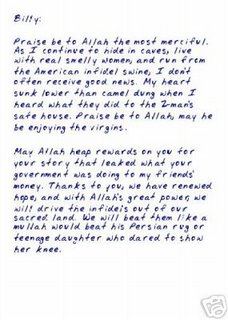 Billy:
Praise be to Allah the most merciful.
As I continue to hide in caves, live
with real smelly women, and run from
the American infidel swine, I don't
often receive good news. My heart
sunk lower than camel dung when I
heard what they did to the Z-man's
safe house. Praise be to Allah, may he
be enjoying the virgins.
May Allah heap rewards on you for
your story that leaked what your
government was doing to my friends'
money. Thanks to you, we have renewed
hope, and with Allah's great power, we
will drive the infidels out of our
sacred land. We will beat them like a
mullah would beat his Persian rug or
teenage daughter who dared to show
her knee.